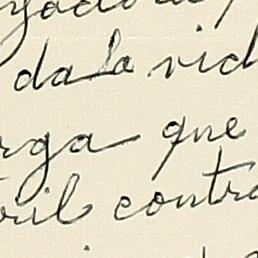 da la vid
rga que
ril contra